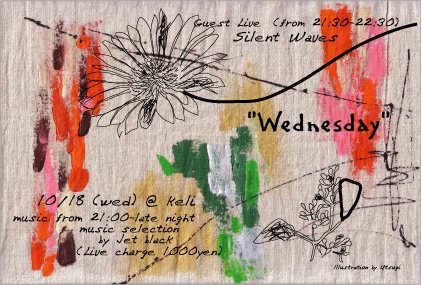 Guest Live (from 21:30-22:30)
Silent Waves
"Wednesday"
10/18 (wed) @ Keli
music from 21:00-late night
music selection
by Jet black
(Live charge 1,000yen)
Illustration by Utsugi